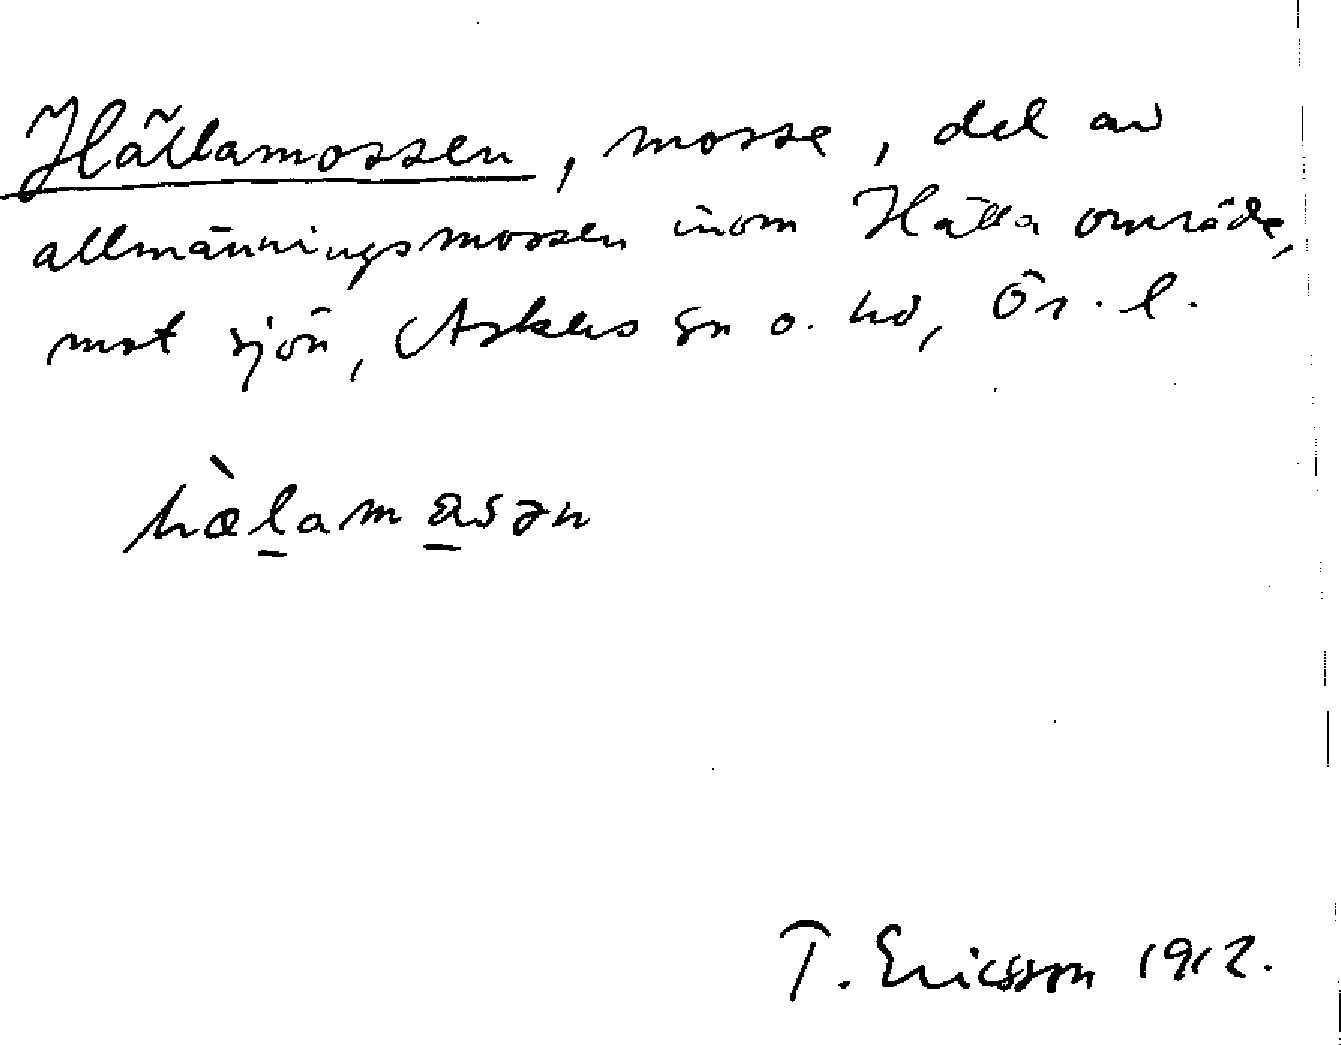 Hällamossen, mosse, del av
allmänningsmossen inom Hälla område,
mot sjön, Askers sn o. hd, Ör. l.
hæ̀l̠ama̠sən
T. Ericsson 1912.